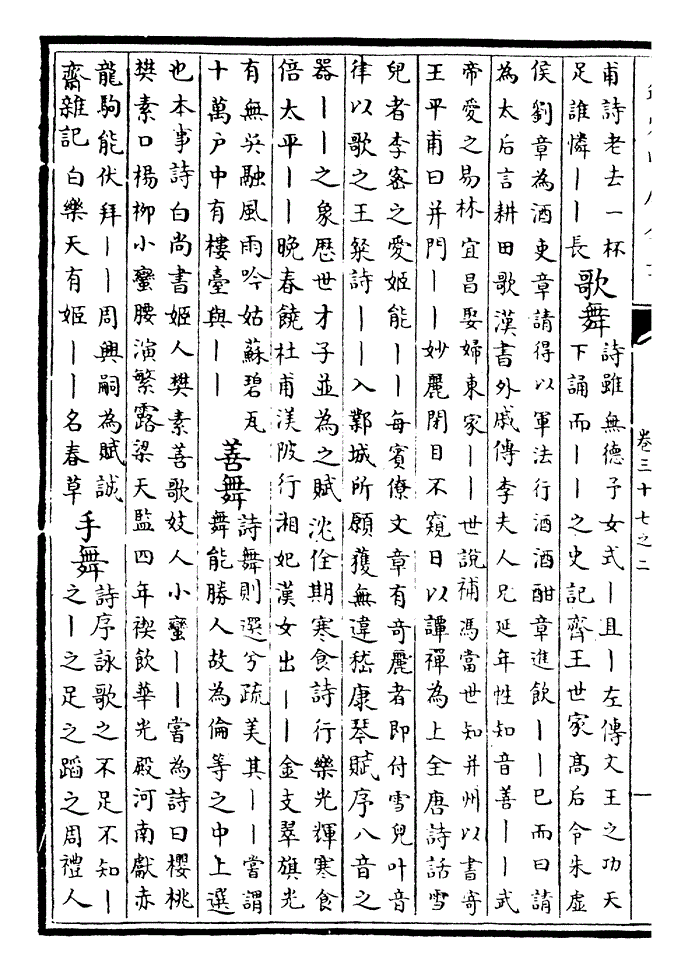 卷三十七之二
一
甫詩老去一杯
足誰憐丨丨長
歌舞
詩雖無德子女式丨且丨左傳文王之功天
下誦而丨丨之史記齊王世家髙后令朱虛
侯劉章為酒吏章請得以軍法行酒酒酣章進飲丨丨已而曰請
為太后言耕田歌漢書外戚傳李夫人兄延年性知音善丨丨武
帝愛之易林宜昌娶婦東家丨丨世說補馮當世知并州以書寄
王平甫曰并門丨丨妙麗閉目不窺日以譚禪為上全唐詩話雪
兒者李密之愛姬能丨丨每賓僚文章有奇麗者即付雪兒叶音
律以歌之王粲詩丨丨入鄴城所願獲無違嵇康琴賦序八音之
器丨丨之象歷世才子並為之賦沈佺期寒食詩行樂光輝寒食
倍太平丨丨晚春饒杜甫渼陂行湘妃漢女出丨丨金支翠旗光
有無吳融風雨吟姑蘇碧瓦
十萬户中有樓臺與丨丨
善舞
詩舞則選兮疏美其丨丨當謂
舞能勝人故為倫等之中上選
也本事詩白尚書姬人樊素善歌妓人小蠻丨丨嘗為詩曰櫻桃
樊素口楊柳小蠻腰演繁露梁天監四年禊飲華光殿河南獻赤
龍駒能伏拜丨丨周興嗣為賦誠
齋雜記白樂天有姬丨丨名春草
手舞
詩序詠歌之不足不知丨
之丨之足之蹈之周禮人